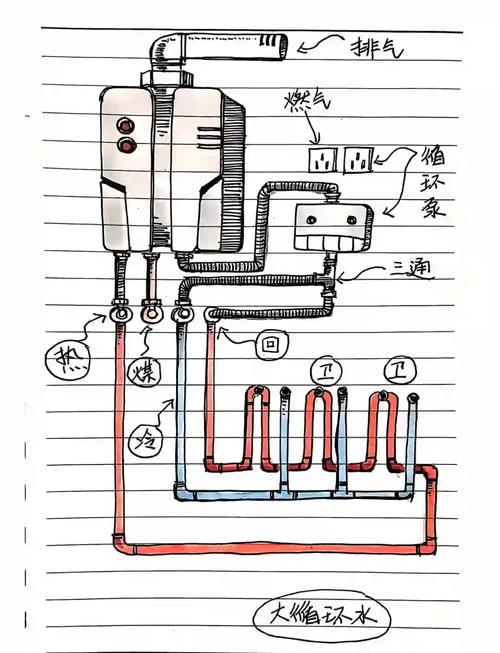 排气
燃气
循环泵
三通
热
煤
回
冷
卫
卫
大循环水